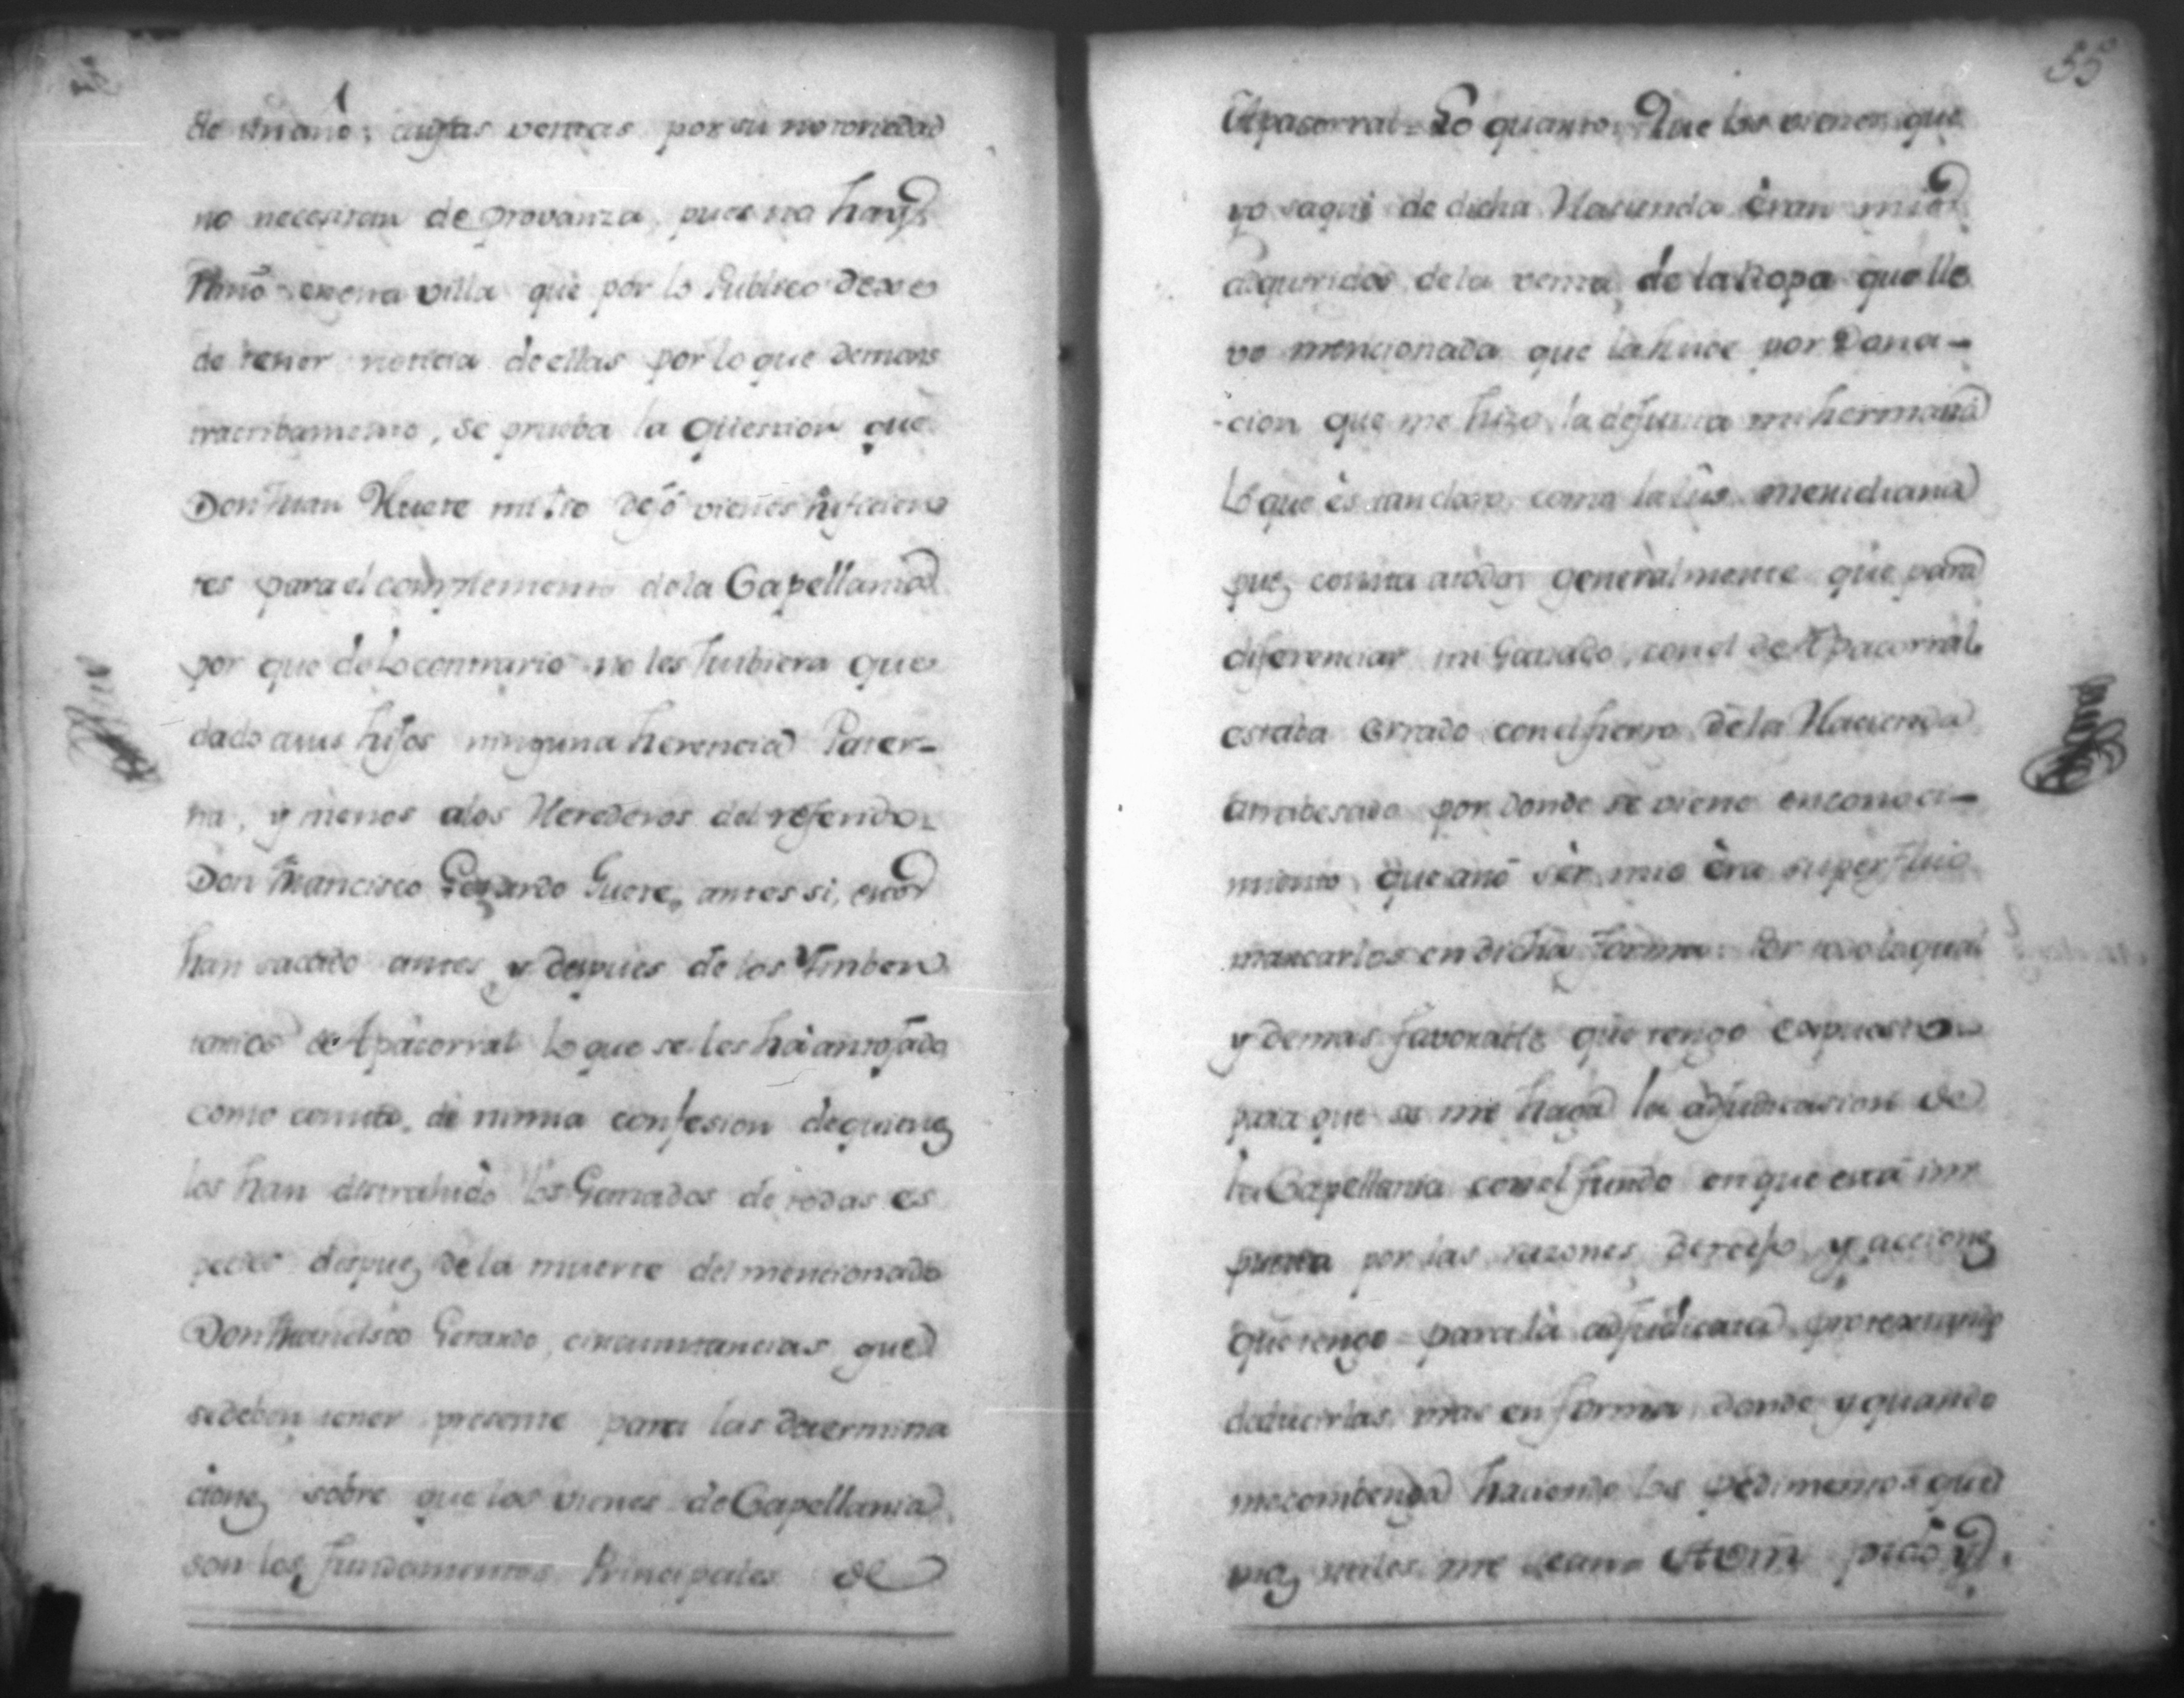 cuyas ventas por su notoriedad
no necesitan de provanza, pues no hay
Niño en esta villa que por lo Publico dexe
de tener noticia de ellas por lo que demons
trativamente, se prueba la question que
Don Juan Huete mi tio dejó vienes suficien
tes para el complemento dela Capellania
por que delo contrario no les hubiera que
dado a sus hijos ninguna herencia Pater-
na, y menos alos Herederos del referido
Don Francisco Gerardo Guete, antes si, estos
han sacado antes y despues de los Imben
tarios de Apacorral lo que se les há antojado
como consta de misma confesion de quienes
los han distrahido los Ganados de todas es
pecies despues dela muerte del mencionado
Don Francisco Gerardo, circunstancias que
se deben tener presente para las determina
ciones sobre que los vienes de Capellania
son los fundamentos Principales de
55
Apacorral. Lo quarto: Que los vienes que
yo saqué de dicha Hacienda eran mios
adquiridos dela venta de la Ropa que lle
vo mencionada que la huve por Dona-
-cion que me hizo la defunta mi hermana
Lo que és tan claro como la lus meridiana
pues consta a todos generalmente que para
diferenciar mi Ganado, con el de Apacorral
estaba errado con el fierro de la Hacienda
atrabesado por donde se viene en conoci-
miento que a nó sér mio éra superfluo
marcarlos en dicha forma: Por todo lo qual
y demas favorable que tengo expuesto
para que se me haga la adjudicasion de
la Capellania con el fundo en que está im
puesta por las razones derecho y acciones
que tengo para la adjudicada protextando
deducirlas mas en forma donde y quando
me combenga haciendo los pedimentos que
mas utiles me sean pido y